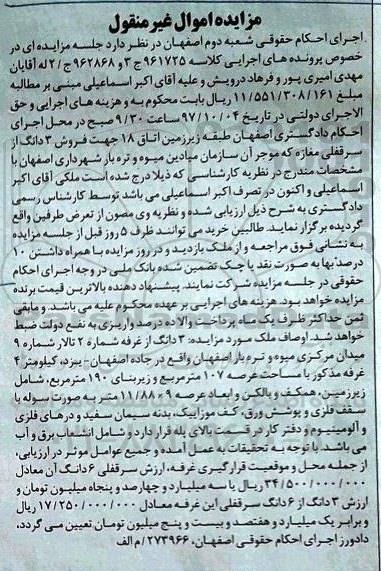 مزایده اموال غیر منقول
اجرای احکام حقوقی شعبه دوم اصفهان در نظر دارد جلسه مزایده ای در
خصوص پرونده های اجرایی کلاسه ۹۶۱۷۲۵ ج ۳ و ۹۶۲۸۶۸ ج / ۲ له آقایان
مهدی امیری پور و فرهاد درویش و علیه آقای اکبر اسماعیلی مبنی بر مطالبه
مبلغ ۱۱/۵۵۱/۳۰۸/۱۶۱ ریال بابت محکوم به و هزینه های اجرایی و حق
الاجرای دولتی در تاریخ ۹۷/۱۰/۰۴ ساعت ۹/۳۰ صبح در محل اجرای
احکام دادگستری اصفهان طبقه زیرزمین اتاق ۱۸ جهت فروش ۳ دانگ از
سرقفلی مغازه که موجر آن سازمان میادین میوه و تره بار شهرداری اصفهان با
مشخصات مندرج در نظریه کارشناسی که ذیلا درج شده است ملکی آقای اکبر
اسماعیلی و اکنون در تصرف اکبر اسماعیلی می باشد توسط کارشناس رسمی
دادگستری به شرح ذیل ارزیابی شده و نظریه وی مصون از تعرض طرفین واقع
گردیده برگزار نماید. طالبین خرید می توانند ظرف ۵ روز قبل از جلسه مزایده
به نشانی فوق مراجعه و از ملک بازدید و در روز مزایده با همراه داشتن ۱۰
درصد بها به صورت نقد یا چک تضمین شده بانک ملی در وجه اجرای احکام
حقوقی در جلسه مزایده شرکت نمایند. پیشنهاد دهنده بالاترین قیمت برنده
مزایده خواهد بود. هزینه های اجرایی بر عهده محکوم علیه می باشد. و مابقی
ثمن حداکثر ظرف یک ماه پرداخت والا ده درصد واریزی به نفع دولت ضبط
خواهد شد. اوصاف ملک مورد مزایده: ۳ دانگ از غرفه شماره ۲ تالار شماره ۹
میدان مرکزی میوه و تره بار اصفهان واقع در جاده اصفهان - یزد، کیلومتر ۴
غرفه مذکور با مساحت عرصه ۱۰۷ متر مربع و زیربنای ۱۹۰ مترمربع، شامل
زیرزمین، همکف و بالکن و ابعاد عرصه ۹×۱۱/۸۸ متر به صورت سوله با
سقف فلزی و پوشش ورق، کف موزاییک، بدنه سیمان سفید و درهای فلزی
و آلومینیوم و دفتر کار در قسمت بالای پله قرار دارد و شامل انشعاب برق و آب
می باشد. با توجه به تحقیقات به عمل آمده و جمیع عوامل موثر در ارزیابی،
از جمله محل و موقعیت قرارگیری غرفه، ارزش سرقفلی ۶ دانگ آن معادل
۳۴/۵۰۰/۰۰۰/۰۰۰ ریال یا سه میلیارد و چهارصد و پنجاه میلیون تومان و
ارزش ۳ دانگ از ۶ دانگ سرقفلی این غرفه معادل ۱۷/۲۵۰/۰۰۰/۰۰۰ ریال
و برابر یک میلیارد و هفتصد و بیست و پنج میلیون تومان تعیین می گردد،
دادورز اجرای احکام حقوقی اصفهان، ۲۷۳۹۶۶/م الف